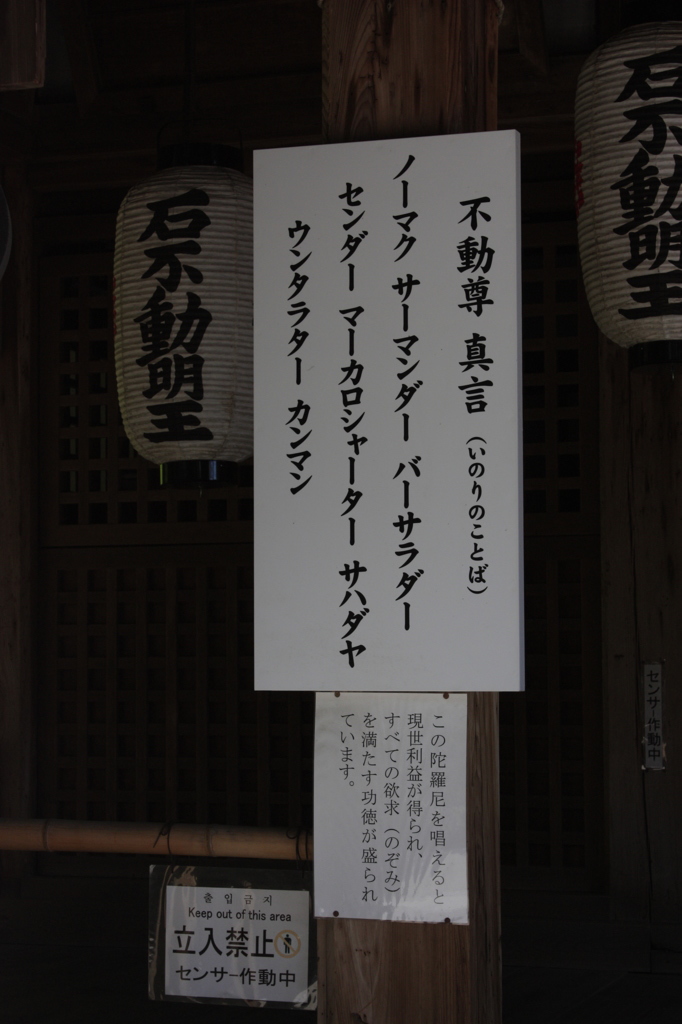 不動尊 真言（いのりのことば）
ノーマク サーマンダー バーサラダー
センダー マーカロシャーター サハダヤ
ウンタラター カンマン
この陀羅尼を唱えると
現世利益が得られ、
すべての欲求（のぞみ）
を満たす功徳が盛られ
ています。
石不動明王
石不動明王
출입금지
Keep out of this area
立入禁止
センサー作動中
センサー作動中